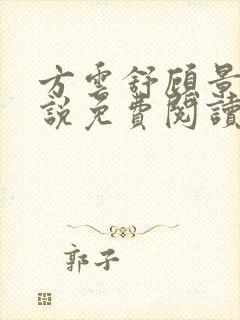 方雲舒顧景
說免費閱讀
郭子